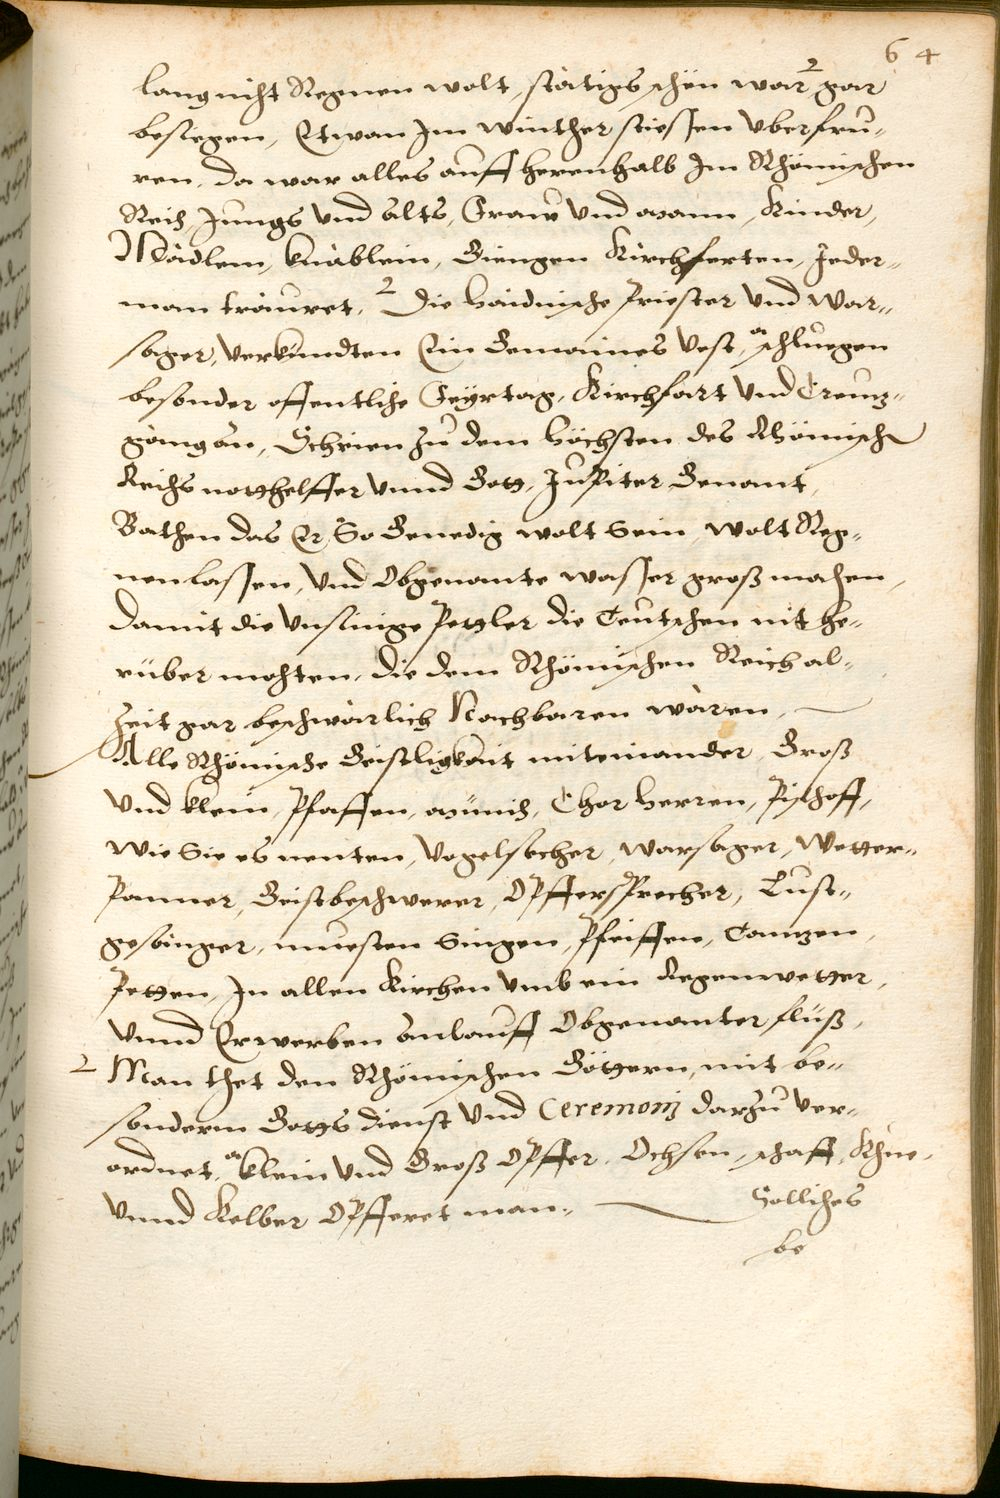 64
lang nicht Regnen wolt, stätigs schön war, gar
besiegen, Etwan Im winther stiessen vberfru-
ren, da war alles auff herenhalb Im Rhömischen
Reich, Jungs vnd alts, Fraw vnd mann, Kinder,
Mädlein, knäblein, Giengen Kirchferten, Jeder-
man trauret, Die haidnische Priester vnd War-
sager, verkündten Ein Gemaines Vest, schluegen
besonder offentliche Feyrtag, Kirchfart vnd Creuz-
gäng an, Schrien zu dem höchsten des Rhömisch
Reichs notthelffer vnnd Gott, Jupiter Genant,
Bathen das Er So Genedig wolt Sein, wolt Reg-
nen lassen, vnd Obgenante wasser groß machen,
damit die vnsinige Pettler die Teutschen nit he-
rüber mohten, die dem Rhömischen Reich al-
zeit gar beschwärlich Nachbaren wären,
Alle Rhömische Geistligkait miteinander Groß
vnd klein, Pfaffen, münich, Chor herren, Pischoff,
wie Sie es nenten, Vogelsecher, warsager, Wetter-
Panner, Geistbeschwerer, Opffersprecher, Lust-
gesinger, muesten Singen, Pfeiffen, Tantzen,
Petten, In allen Kirchen vmb ein Regenwetter,
vnnd Erwerben anlauff Obgenanter flüß,
Man thet den Rhömischen Göttern, mit be-
sonderm Gotts dienst vnd Ceremonj darzu ver-
ordnet, klein vnd Groß Opffer, Ochsen, schaff, Khüe,
vnnd Kelber Opfferet man. Solliches
be